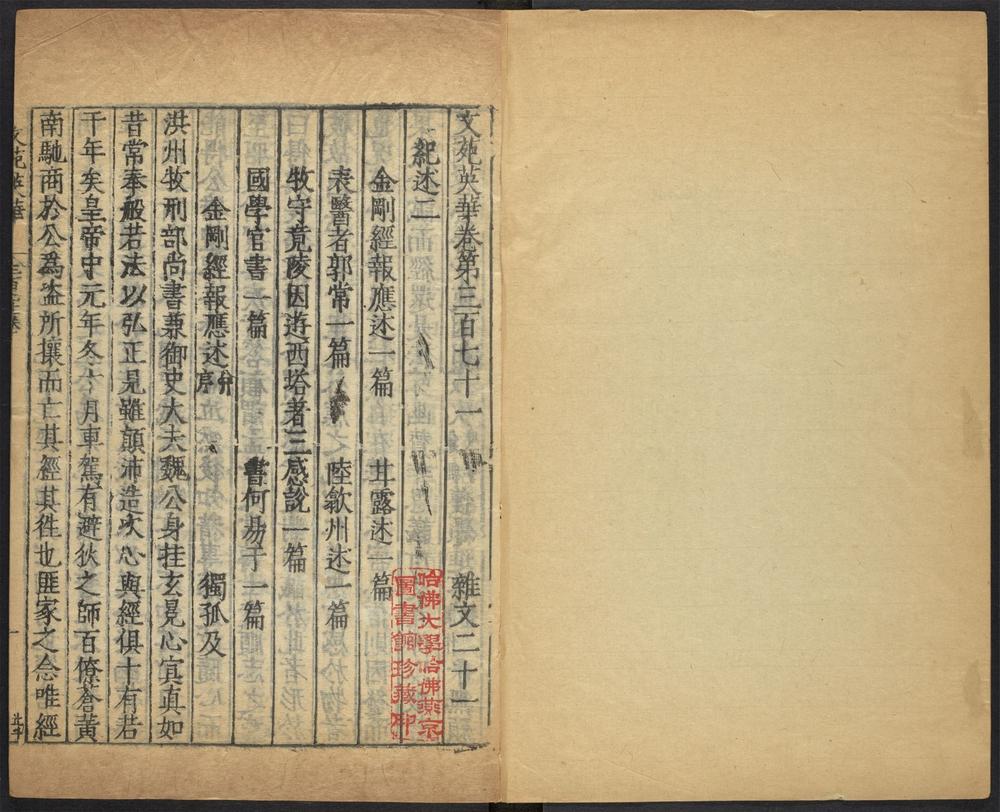 文苑英華卷第三百七十一　雜文二十一
紀述二
金剛經報應述一篇　甘露述一篇
表醫者郭常一篇　陸歙州述一篇
牧守竟陵因遊西塔著三感說一篇
國學官書一篇　書何易于一篇
金剛經報應述并序　獨孤及
洪州牧刑部尚書兼御史大夫魏公身挂玄冕心㝠真如
昔常奉般若法以弘正見雖顛沛造次心與經俱十有若
干年矣皇帝中元年冬十月車駕有避狄之師百僚蒼黃
南馳商於公為盗所攘而亡其經其徃也匪家之念唯經
文苑英華
一
哈佛大學哈佛燕京
圖書館珍藏印